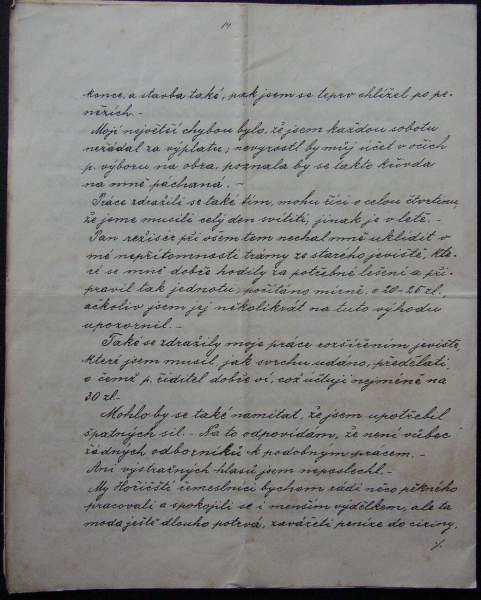 14
konce, a stavba také, pak jsem se teprv ohlížel po pe-
nězích.-
Mojí největší chybou bylo, že jsem každou sobotu
nežádal za výplatu; nevyrostl by můj účet v očích
p. výboru na obra, poznala by se takto křivda
na mně páchaná.-
Práce zdražili se také tím, mohu říci o celou čtvrtinu,
že jsme musili celý den svítiti, jinak je v letě.-
Pan režisér při všem tom nechal mně uklidit v
mé nepřítomnosti trámy ze starého jeviště, kte-
ré se mně dobře hodily za potřebné lešení a při-
pravil tak jednotu, počítáno mírně, o 20-25 zl.,
ačkoliv jsem jej několikrát na tuto výhodu
upozornil.-
Také se zdražily moje práce rozšířením jeviště,
které jsem musil, jak svrchu udáno, předělati,
o čemž p. řiditel dobře ví, což účtuji nejméně na
30 zl.-
Mohlo by se také namítat, že jsem upotřebil
špatných sil.- Na to odpovídám, že není vůbec
řádných odborníků k podobným pracem.-
Ani výstražných hlasů jsem neposlechl.-
My Hořičtí řemeslníci bychom rádi něco pěkného
pracovali a spokojili se i menším výdělkem, ale ta
moda ještě dlouho potrvá, zaváželi peníze do ciziny,
./.